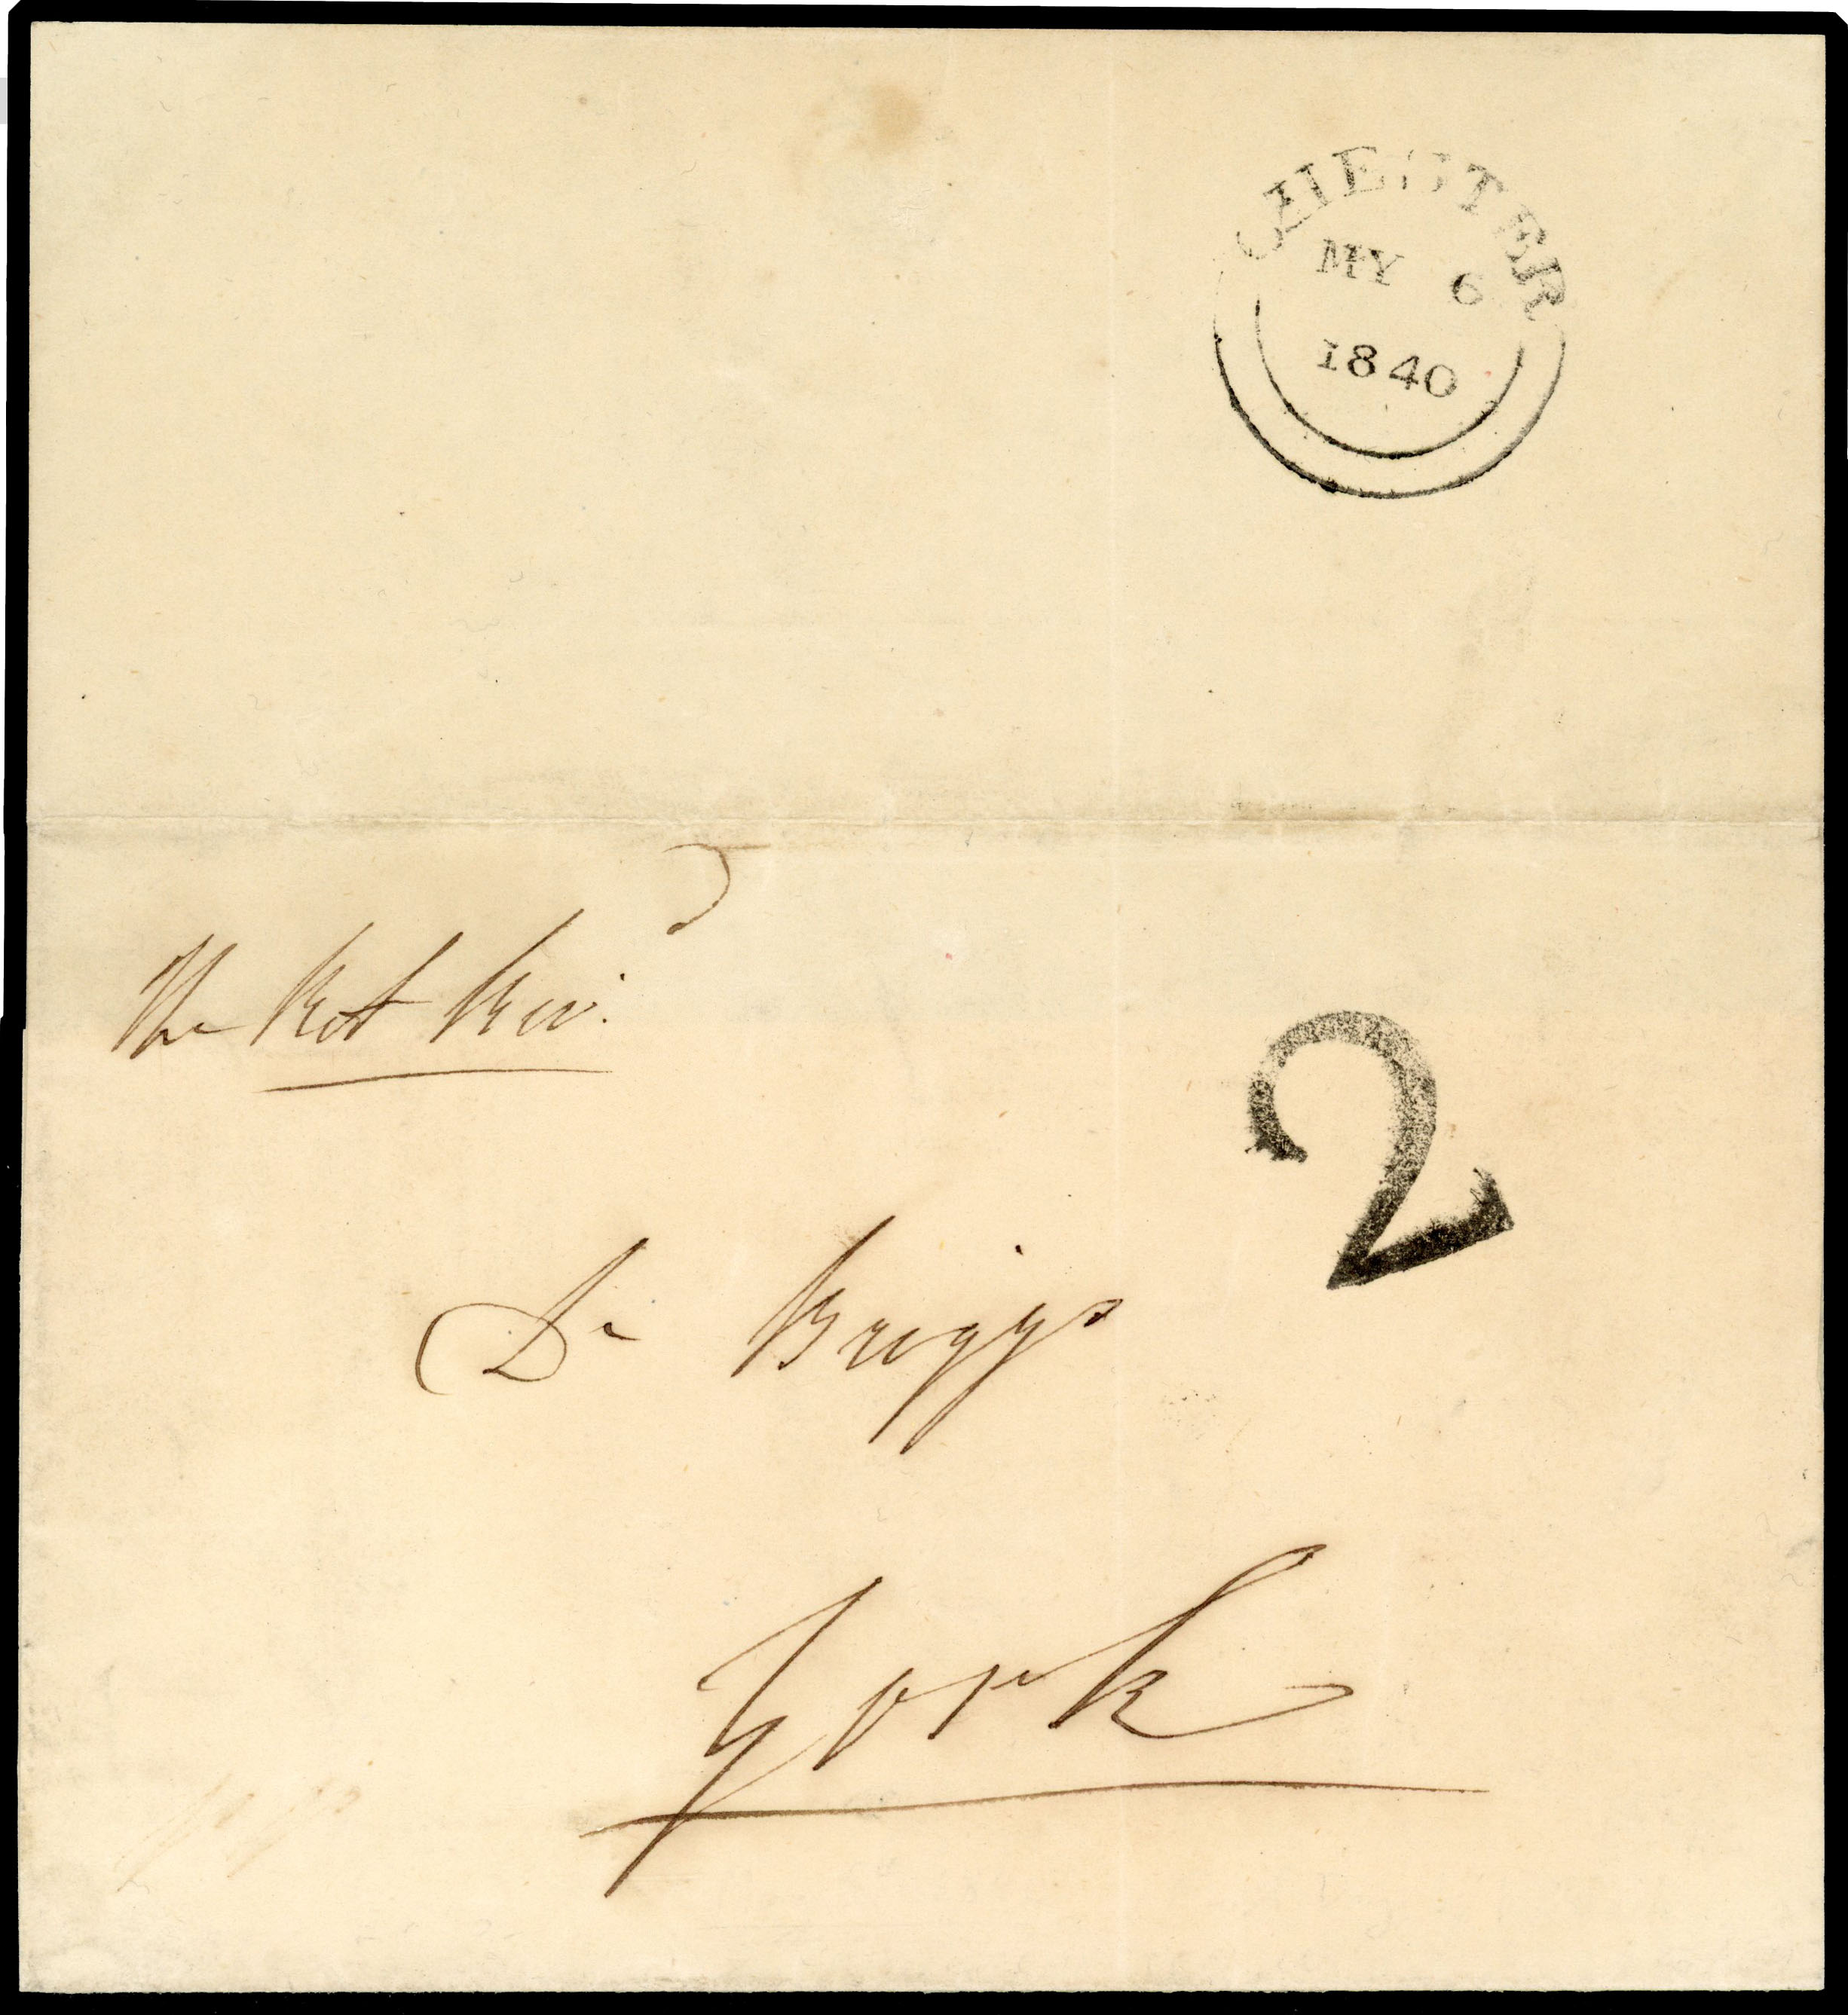 CHESTER
MY 6
1840
The Rt Revd
2
Dr Briggs
York